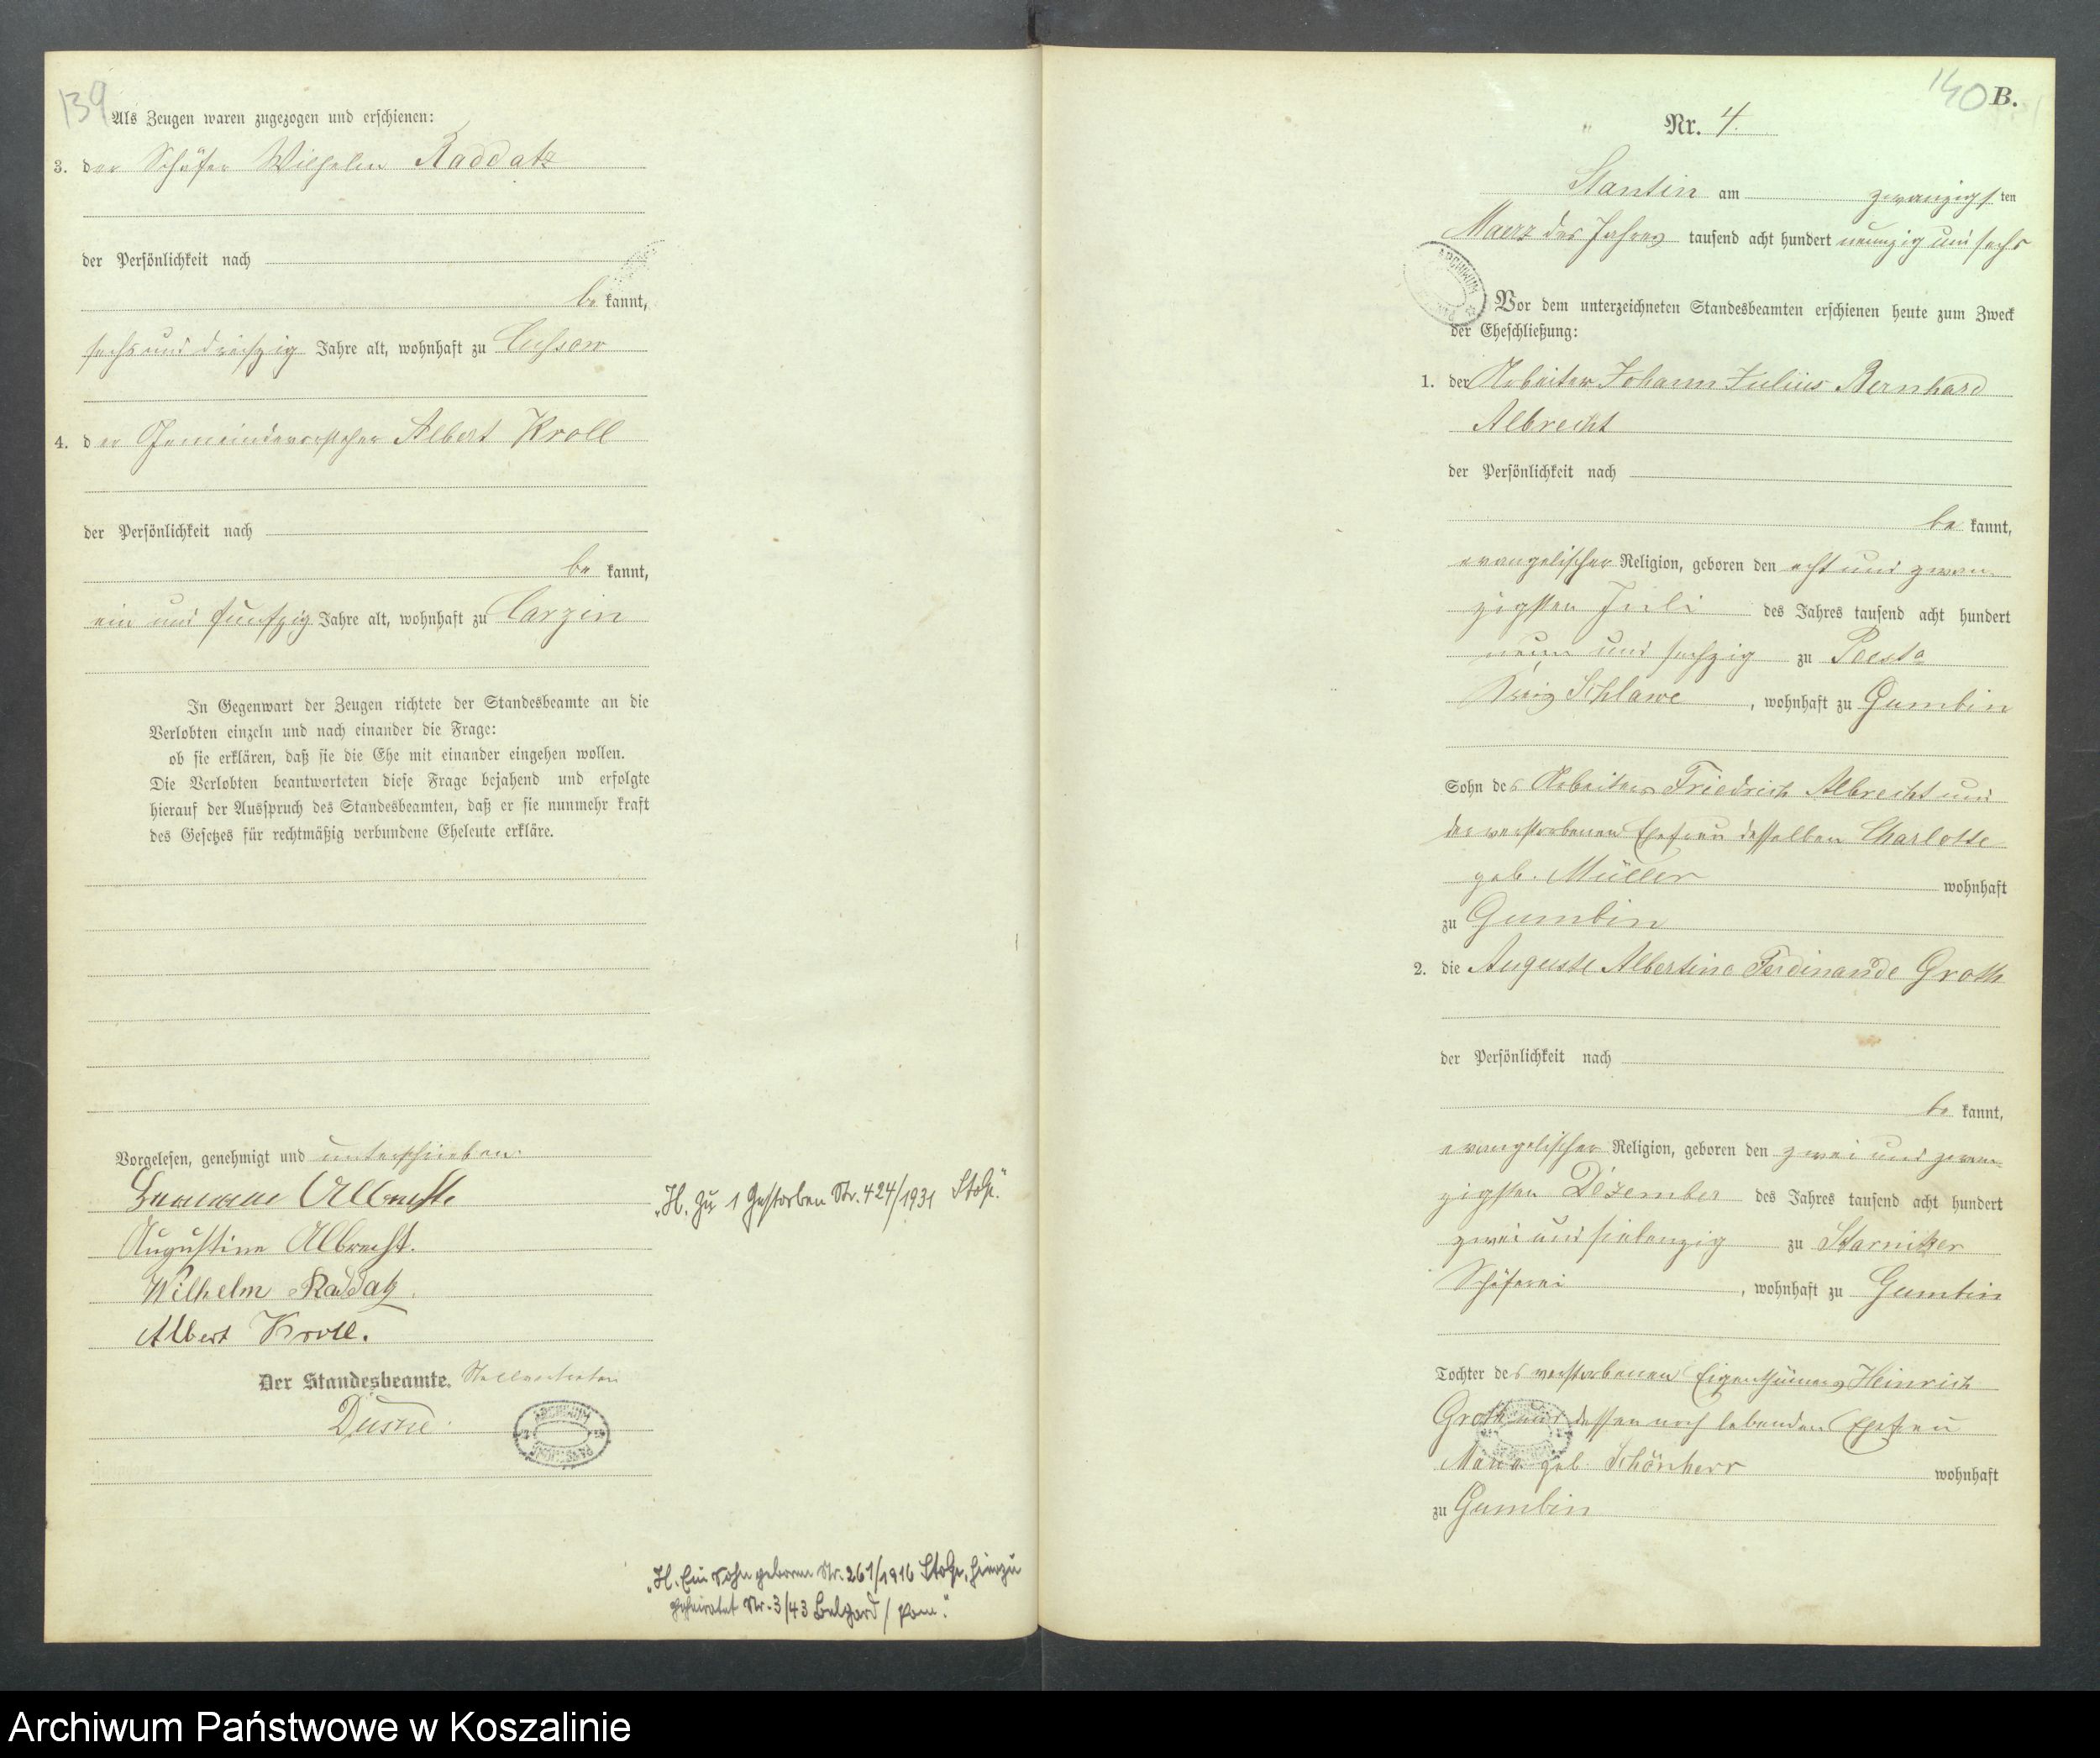 139
Als Zeugen waren zugezogen und erschienen:
3. der Schäfer Wilhelm Raddatz
der Persönlichkeit nach
be kannt,
sechs und dreißig Jahre alt, wohnhaft zu Cussow
4. der Gemeindevorsteher Albert Kroll
der Persönlichkeit nach
be kannt,
ein und fünfzig Jahre alt, wohnhaft zu Carzin
In Gegenwart der Zeugen richtete der Standesbeamte an die
Verlobten einzeln und nach einander die Frage:
ob sie erklären, daß sie die Ehe mit einander eingehen wollen.
Die Verlobten beantworteten diese Frage bejahend und erfolgte
hierauf der Ausspruch des Standesbeamten, daß er sie nunmehr kraft
des Gesetzes für rechtmäßig verbundene Eheleute erkläre.
Vorgelesen, genehmigt und unterschrieben.
Hermann Albrecht.
Augustine Albrecht.
Wilhelm Raddatz.
Albert Kroll.
Der Standesbeamte. Stellvertreter
"H. Zu 1 Gestorben Nr. 424/1931 Stolp."
"H. Ein Sohn geboren Nr. 261/1916 Stolp, hierzu
geheiratet Nr. 3/43 Belgard/Pom."
140 B.
Nr. 4.
Stantin am zwanzigsten
Maerz des Jahres tausend acht hundert neunzig und sechs
ARCHIWUM
Vor dem unterzeichneten Standesbeamten erschienen heute zum Zweck
der Eheschließung:
1. der Arbeiter Johann Julius Bernhard
Albrecht
der Persönlichkeit nach
be kannt,
evangelischer Religion, geboren den acht und zwan-
zigsten Juli des Jahres tausend acht hundert
neun und sechzig zu Peest
Kreis Schlawe, wohnhaft zu Gumbin
Sohn des Arbeiters Friedrich Albrecht und
der verstorbenen Ehefrau desselben Charlotte
geb. Müller wohnhaft
zu Gumbin
2. die Auguste Albertine Ferdinande Groth
der Persönlichkeit nach
be kannt,
evangelischer Religion, geboren den zwei und zwan-
zigsten Dezember des Jahres tausend acht hundert
zwei und siebenzig zu Starnitzer
Schäferei, wohnhaft zu Gumbin
Tochter des verstorbenen Eigenthümers Heinrich
Groth und dessen noch lebenden Ehefrau
Maria geb. Schönherr wohnhaft
zu Gumbin
Archiwum Państwowe w Koszalinie